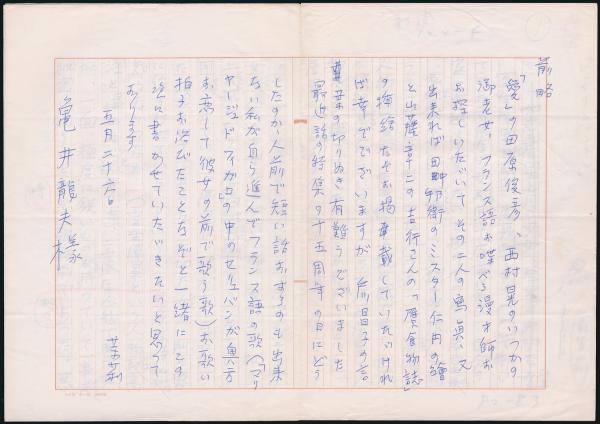 前略
「愛」の田原俊彦、西村晃のいつかの
御老女、フランス語お喋べる漫才師お
お探しいただいてその二人の寫眞、又
出来れば田邦衛のミスター仁丹の繪
と山藤章二の吉行さんの「贋食物誌」
の挿繪などお掲載していただけれ
ば幸でございますが
切りぬき有難うございました
最近話の特集の十五周年の日にどう
したのか、人前で短い話おするのも出来
ない私が自ら進んでフランス語の歌(「マリ
ヤージュ・ド・フィガロ」の中のセリュバンが奥方
お恋して彼女の前で歌う歌)お歌い
拍手お浴びたことなぞと一緒にこの
次に書かせていただきたいと思って
おります
五月二十六日
茉莉
亀井龍夫様